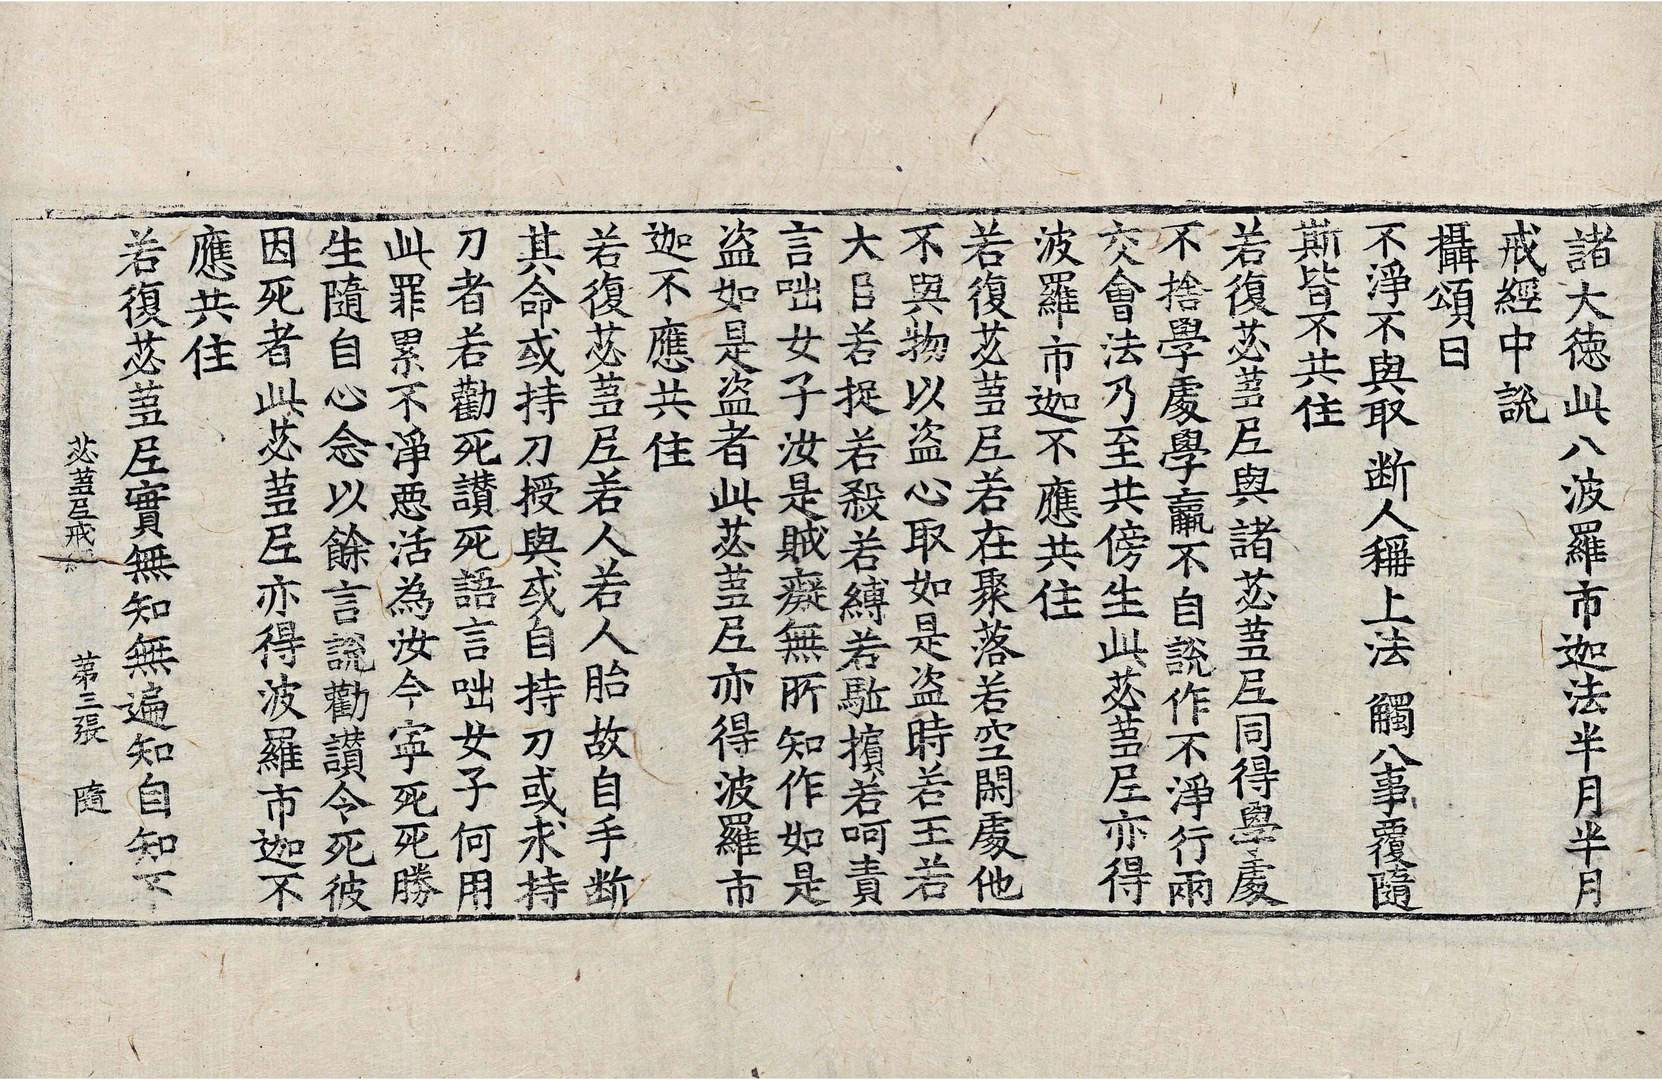 諸大徳此八波羅市迦法半月半月
戒經中說
攝頌曰
不淨不與取 断人稱上法 觸八事覆隨
斯皆不共住
若復苾蒭尼與諸苾蒭尼同得學處
不捨學處學羸不自說作不淨行兩
交會法乃至共傍生此苾蒭尼亦得
波羅市迦不應共住
若復苾蒭尼若在聚落若空閑處他
不與物以盗心取如是盗時若王若
大臣若捉若殺若縛若駈擯若呵責
言咄女子汝是賊癡無所知作如是
盗如是盗者此苾蒭尼亦得波羅市
迦不應共住
若復苾蒭尼若人若人胎故自手断
其命或持刀授與或自持刀或求持
刀者若勸死讃死語言咄女子何用
此罪累不淨惡活為汝今寜死死勝
生隨自心念以餘言說勸讃令死彼
因死者此苾蒭尼亦得波羅市迦不
應共住
若復苾蒭尼實無知無遍知自知不
苾蒭尼戒經 第三張 隨